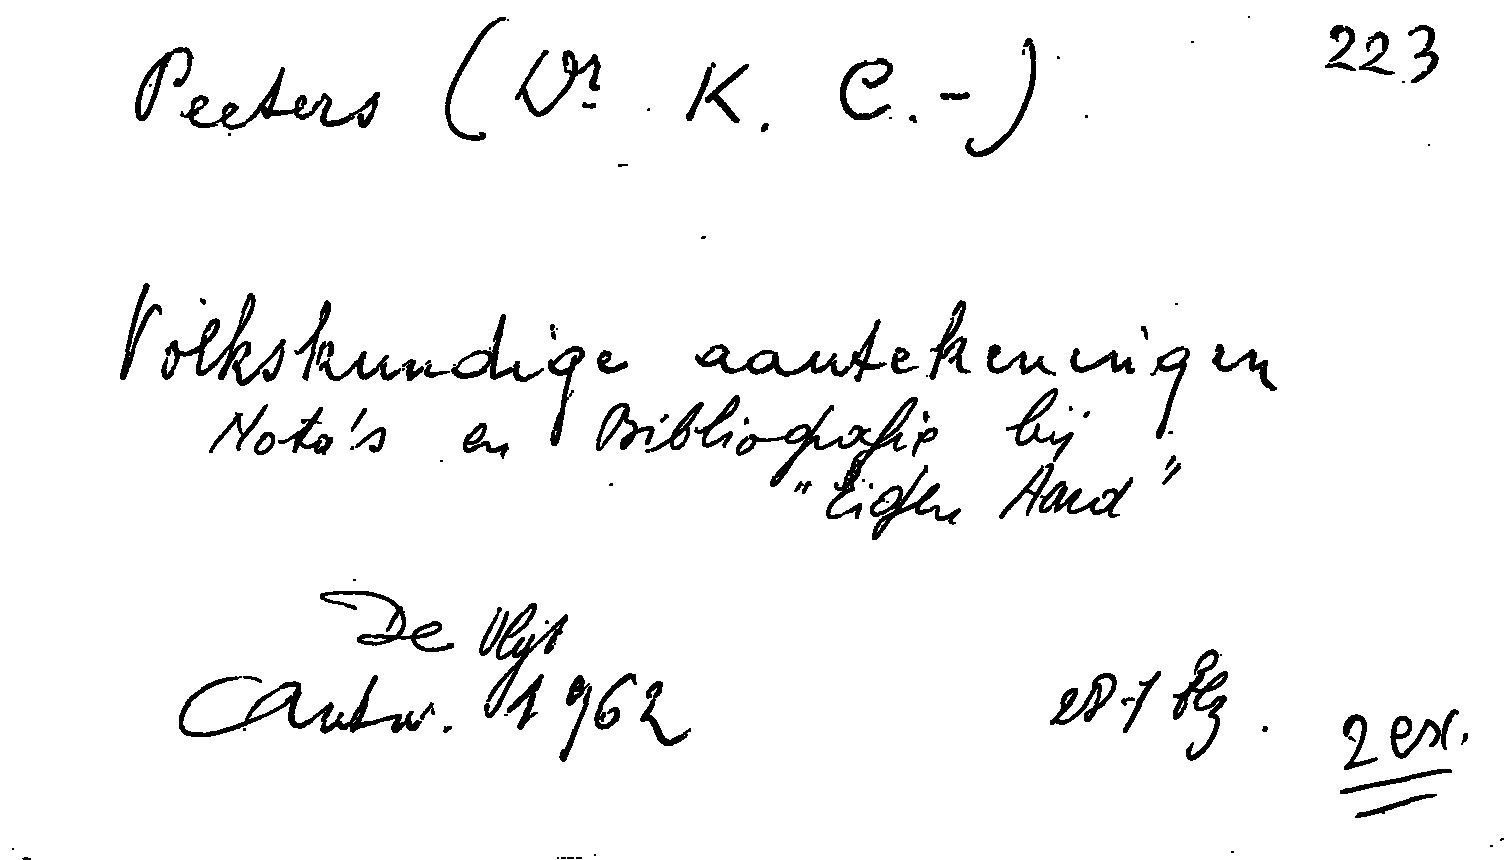 Peeters (Dr K. C.-) 223
Volkskundige aantekeningen
Nota's en Bibliografie bij
"Eigen Aard"
De Vlijt
Antw. 1962
blz.
2 ex.